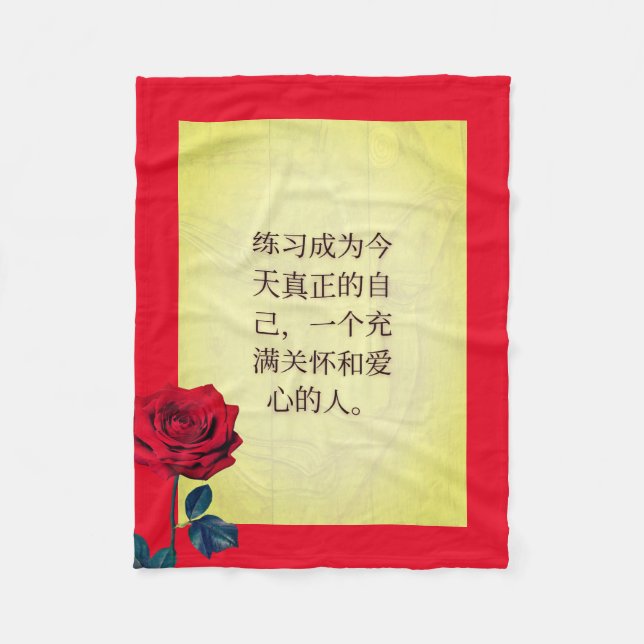 练习成为今
天真正的自
己，一个充
满关怀和爱
心的人。